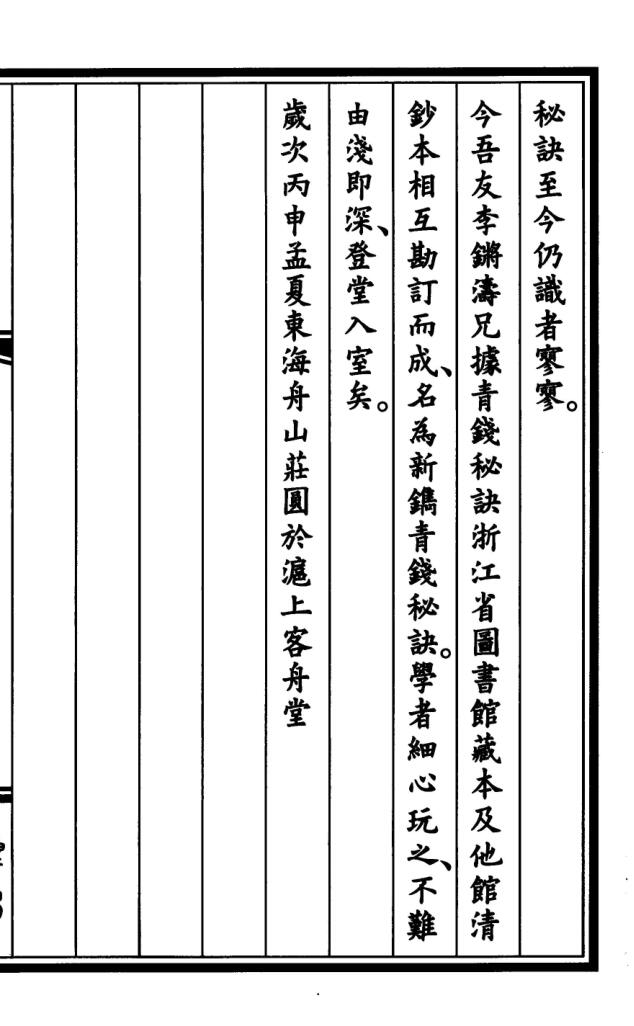 秘訣至今仍識者寥寥。
今吾友李鏘濤兄據青錢秘訣浙江省圖書館藏本及他館清
鈔本相互勘訂而成、名為新鐫青錢秘訣。學者細心玩之、不難
由淺即深、登堂入室矣。
歲次丙申孟夏東海舟山莊圓於滬上客舟堂